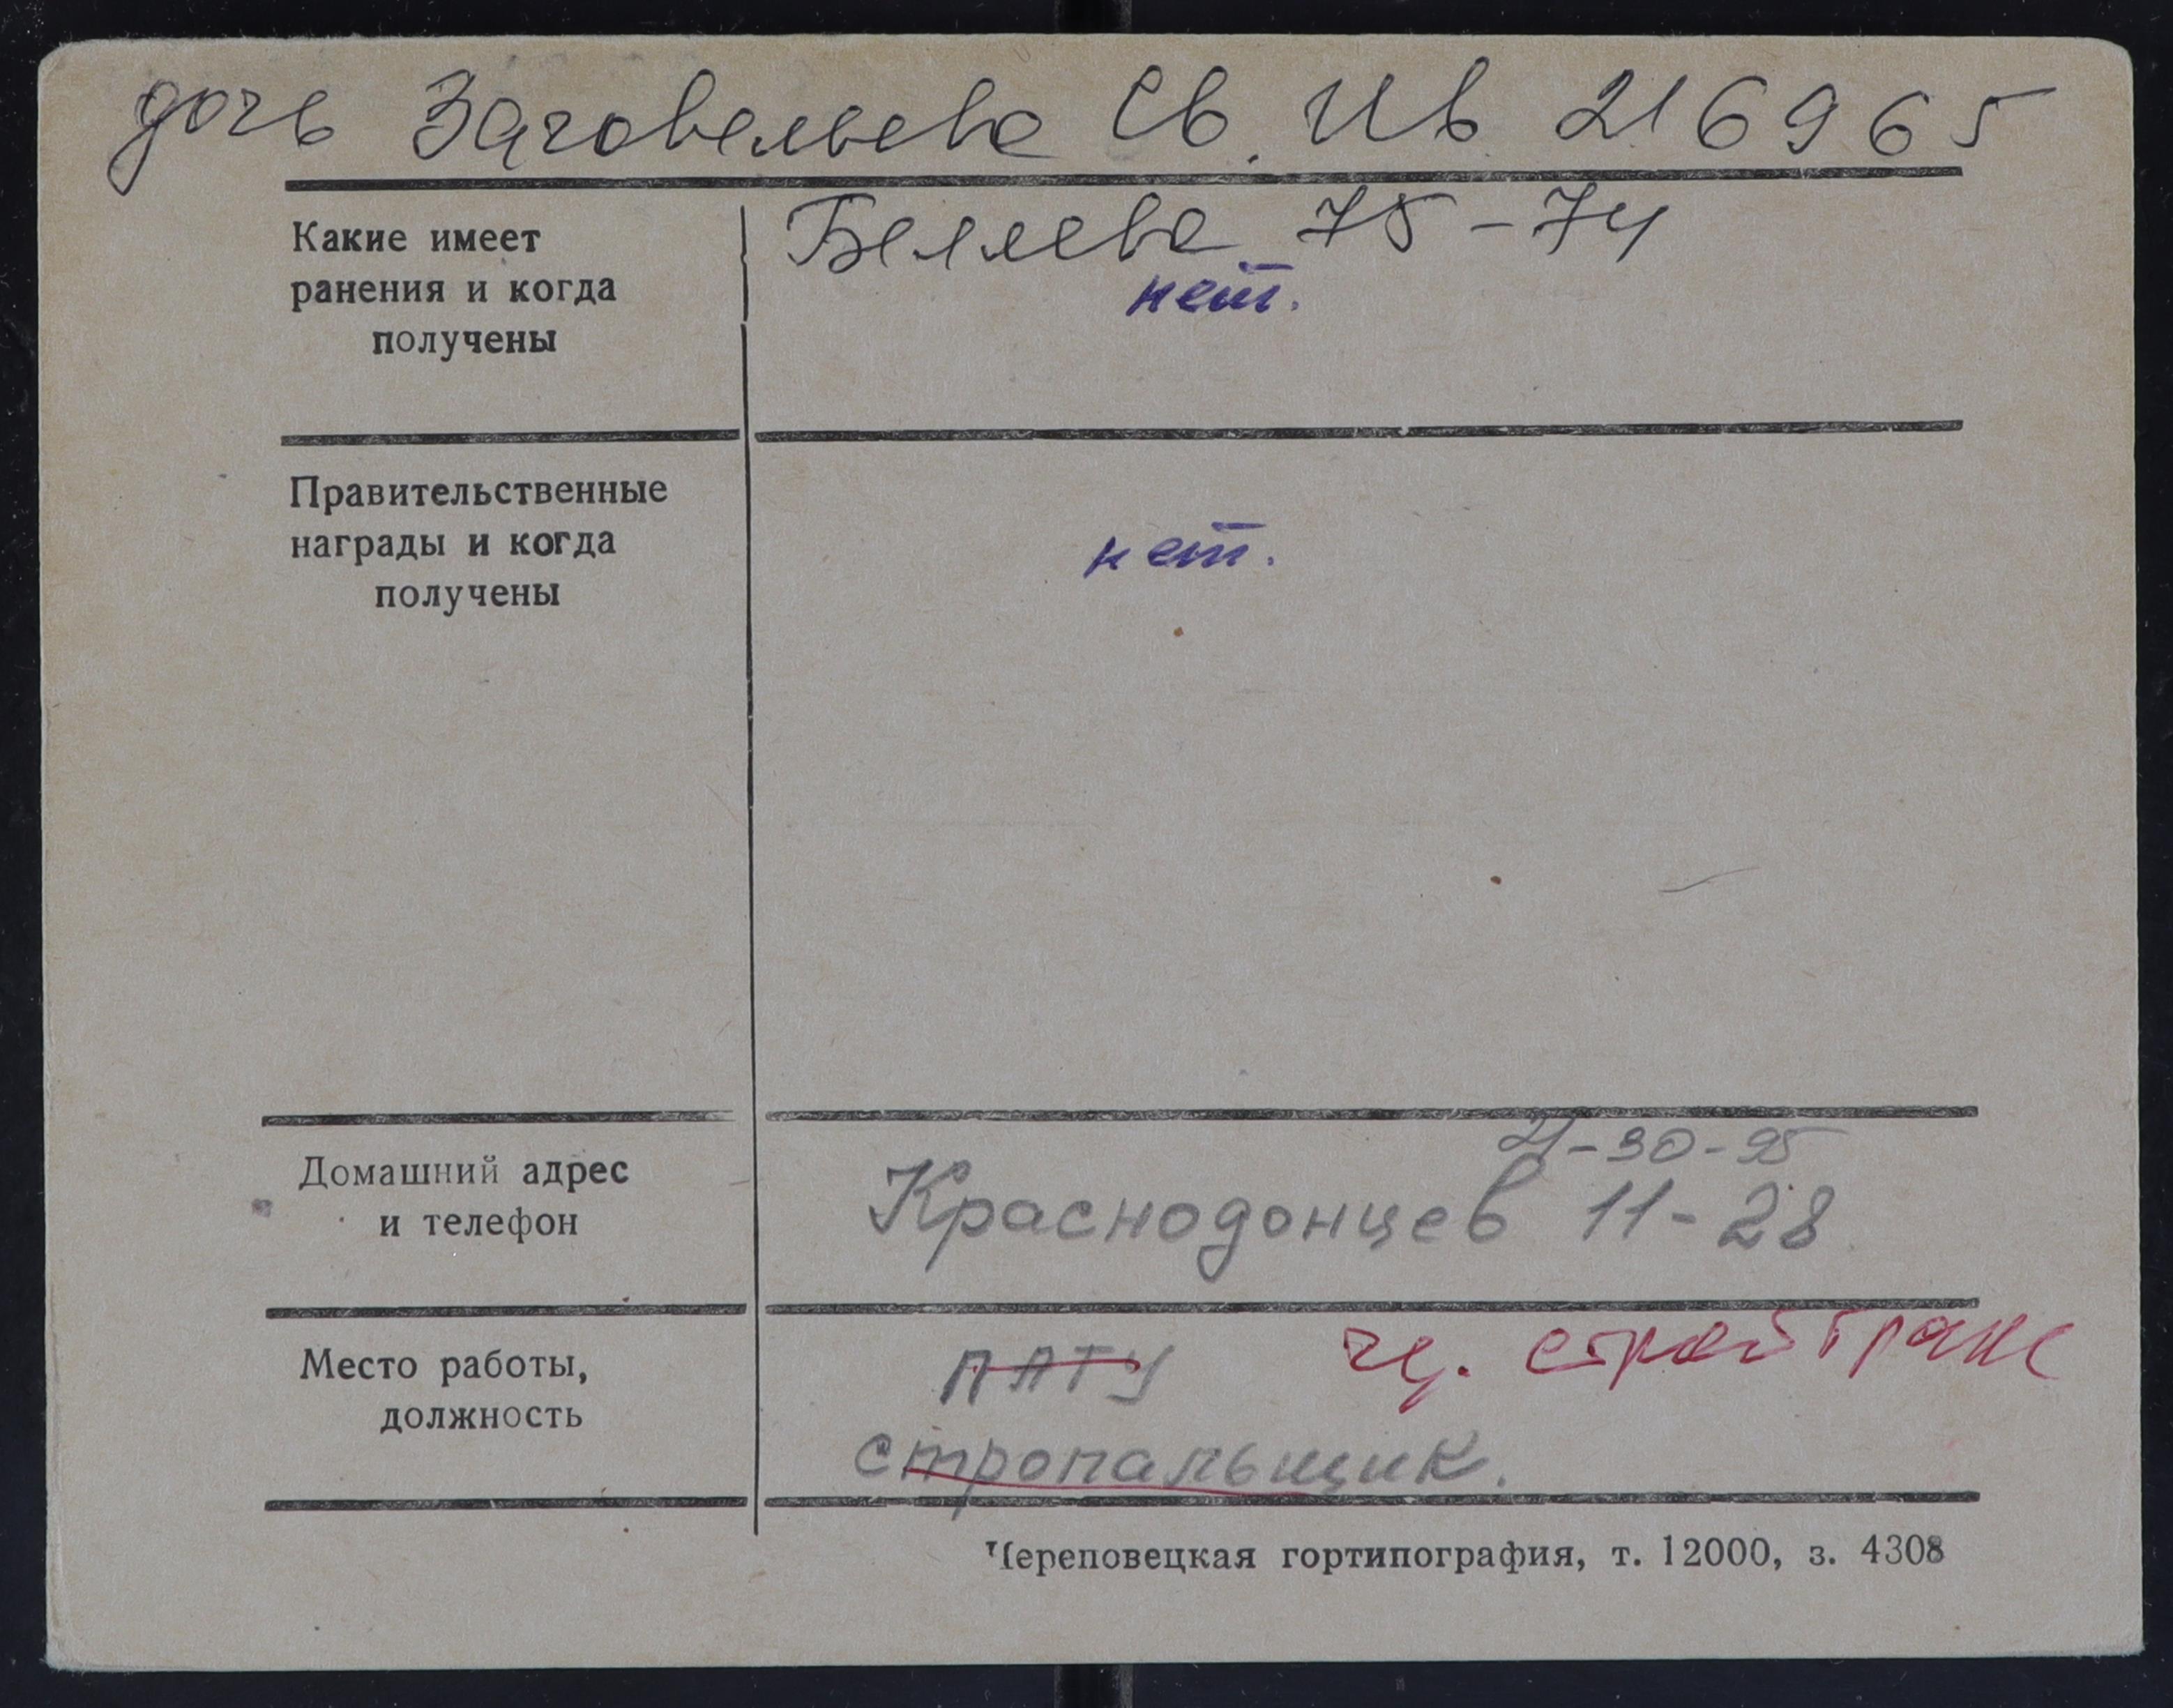 дочь Заговельева Св. Ив. 216965
Беляева 75-74
Какие имеет
ранения и когда
получены
нет.
Правительственные
награды и когда
получены
нет.
Домашний адрес
и телефон
-30-95
Краснодонцев 11-28
Место работы,
должность
ПАТУ стройтранс
стропальщик.
Череповецкая гортипография, т. 12000, з. 4308